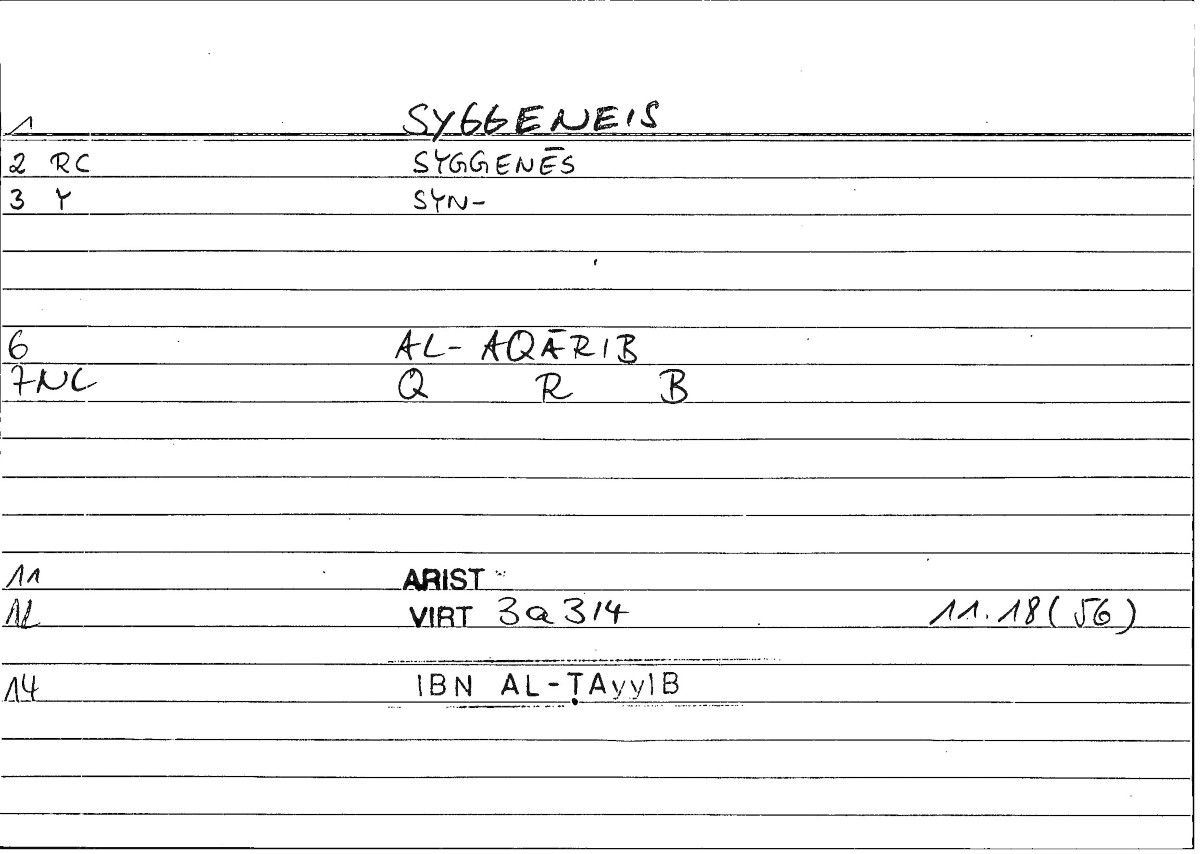 1 SYGGENEIS
2 RC SYGGENĒS
3 Y SYN-
6 AL-AQĀRIB
7NC Q R B
11 ARIST
12 VIRT 3a3/4 11.18(56)
14 IBN AL-ṬAyyIB